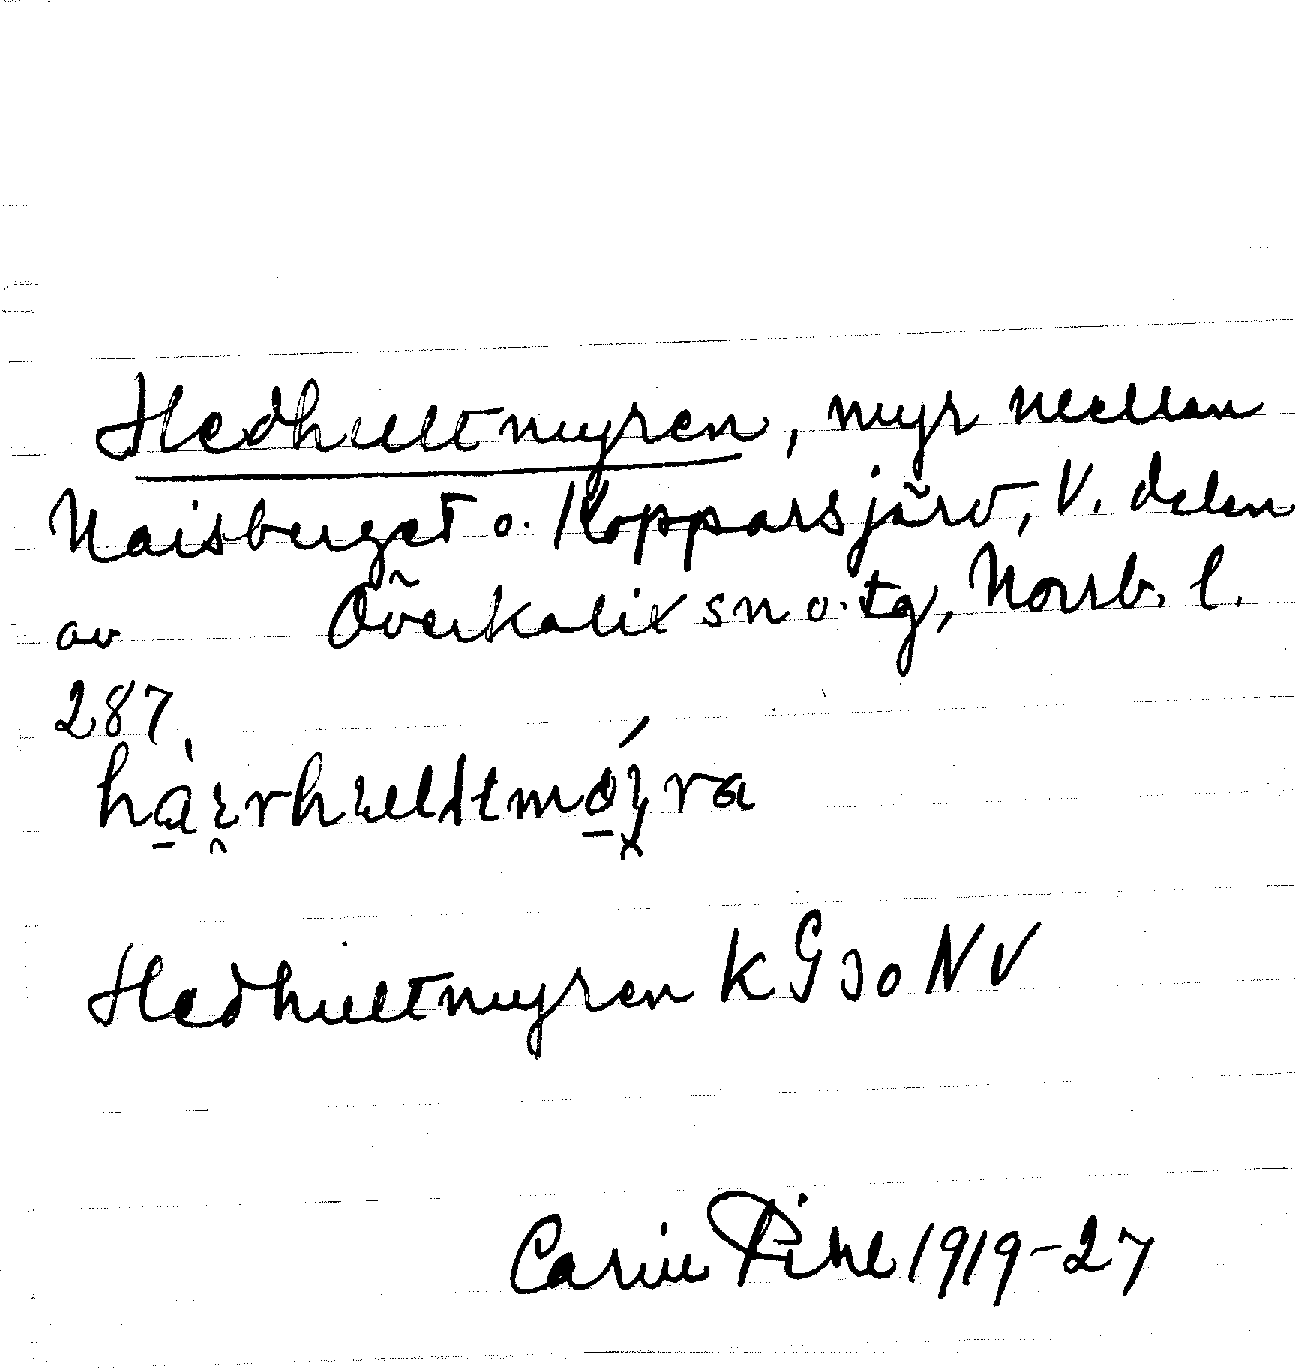 Hedhultmyren, myr mellan
Naisberget o. Kopparsjärv, V. delen
av Överkalix sn o. tg, Norrb. l.
287.
Hedhultmyren K G 30 NV
Carin Pihl 1919-27